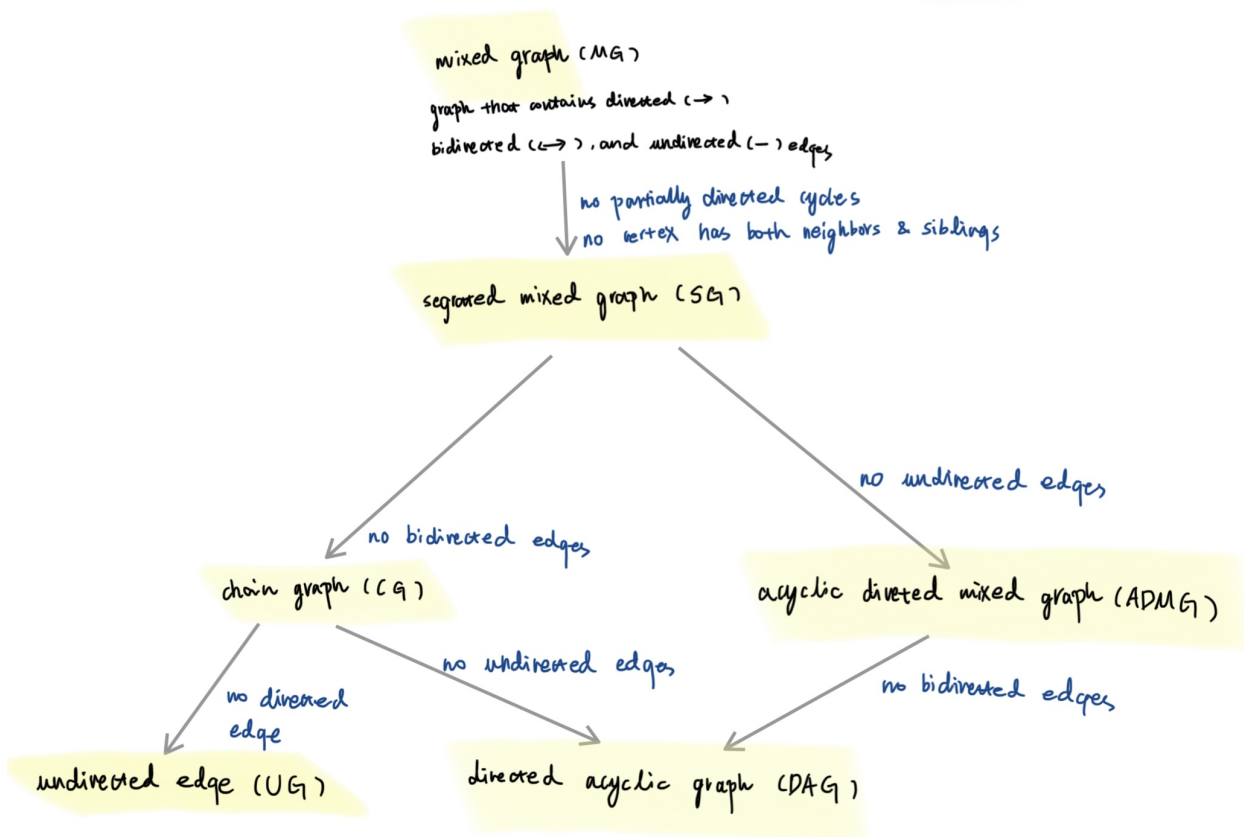 mixed graph (MG)
graph that contains directed (→)
bidirected (↔), and undirected (—) edges
no partially directed cycles
no vertex has both neighbors & siblings
segrated mixed graph (SG)
no undirected edges
no bidirected edges
chain graph (CG)
acyclic direted mixed graph (ADMG)
no undirected edges
no directed
edge
no bidirected edges
undirected edge (UG)
directed acyclic graph (DAG)